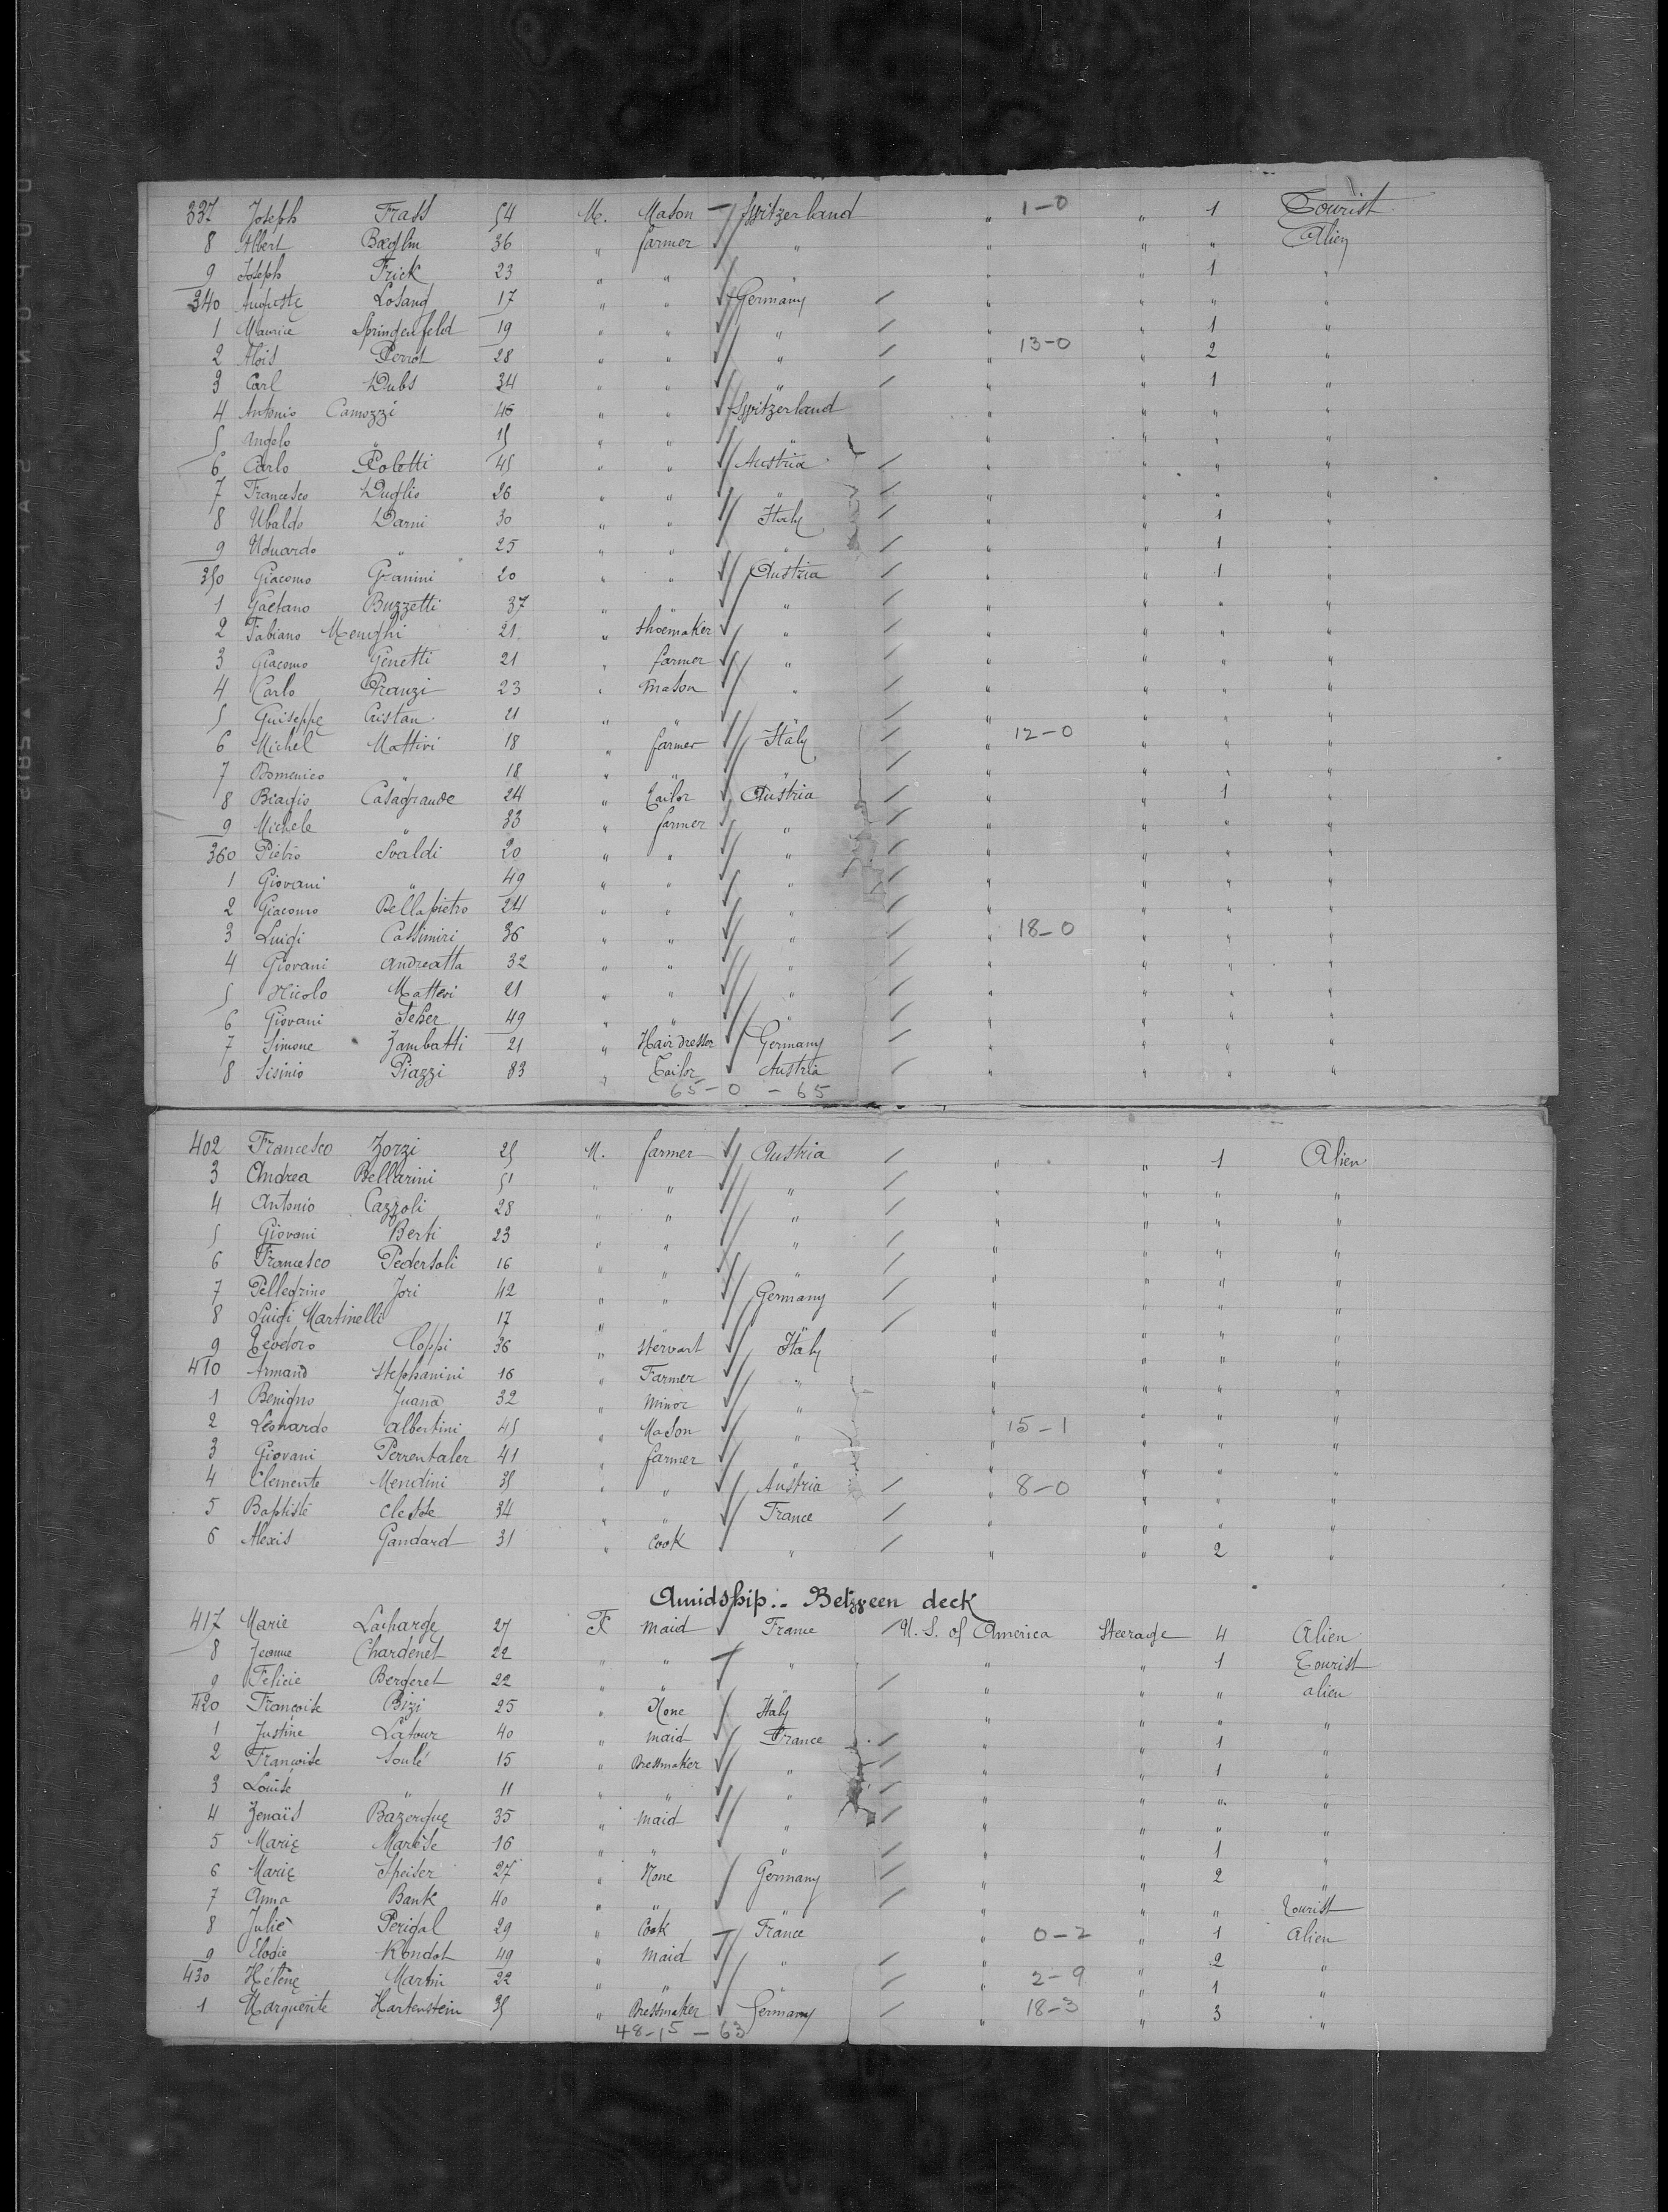 337 Joseph Frass 54 M. Mason Switzerland " 1-0 " 1 Tourist
8 Albert Bæglin 36 " farmer " " " " Alien
9 Joseph Frick 23 " " " " " 1 "
340 Auguste Losang 17 " " Germany " " " "
1 Maurice Springenfeld 19 " " " " " 1 "
2 Alois Perrot 28 " " " " 13-0 " 2 "
3 Carl Dubs 34 " " " " " 1 "
4 Antonio Camozzi 46 " " Switzerland " " " "
5 Angelo " 15 " " " " " " "
6 Carlo Poletti 45 " " Austria " " " "
7 Francesco Duglio 26 " " " " " " "
8 Ubaldo Darni 30 " " Italy " " 1 "
9 Uduardo " 25 " " " " " 1 "
350 Giacomo Granini 20 " " Austria " " 1 "
1 Gaetano Buzzetti 37 " " " " " " "
2 Fabiano Menighi 21 " Shoemaker " " " " "
3 Giacomo Genetti 21 " farmer " " " " "
4 Carlo Pranzi 23 " Mason " " " " "
5 Guiseppe Cristan 21 " " " " " " "
6 Michel Mattivi 18 " farmer Italy " 12-0 " " "
7 Domenico " 18 " " " " " " "
8 Biagio Casagrande 24 " Tailor Austria " " 1 "
9 Michele " 33 " farmer " " " " "
360 Pietro Svaldi 20 " " " " " " "
1 Giovani " 49 " " " " " " "
2 Giacomo Bellapietro 24 " " " " " " "
3 Luigi Cassimiri 36 " " " " 18-0 " " "
4 Giovani Andreatta 32 " " " " " " "
5 Nicolo Mattevi 21 " " " " " " "
6 Giovani 49 " " " " " " "
7 Simone Zambatti 21 " Hair dresser Germany " " " "
8 Sisinio Piazzi 33 " Tailor Austria " " " "
65-0 - 65
402 Francesco Zorzi 25 M. farmer Austria " " 1 Alien
3 Andrea Bellarini 51 " " " " " " "
4 Antonio Cazzoli 28 " " " " " " "
5 Giovani Berti 23 " " " " " " "
6 Francesco Pedersoli 16 " " " " " " "
7 Pellegrino Jori 42 " " Germany " " " "
8 Luigi Martinelli 17 " " " " " " "
9 Teodoro Cloppi 36 " Stervart Italy " " " "
410 Armand Stephanini 16 " Farmer " " " " "
1 Benigno Juana 32 " Minor " " " " "
2 Leonardo Albertini 45 " Mason " " 15-1 " " "
3 Giovani Perrentaler 41 " farmer " " " " "
4 Clemente Mendini 35 " " Austria " 8-0 " " "
5 Baptiste Clesse 34 " " France " " " "
6 Alexis Gandard 31 " Cook " " " 2 "
Amidship.. Between deck
417 Marie Lacharge 27 F Maid France U. S. of America Steerage 4 Alien
8 Jeanne Chardenet 22 " " " " " 1 Tourist
9 Felicie Bergeret 22 " " " " " " alien
420 Françoise Bizi 25 " None Italy " " " "
1 Justine Latour 40 " maid France " " 1 "
2 Françoise Soulé 15 " Dressmaker " " " 1 "
3 Louise " 11 " " " " " " "
4 Zenaïs Bazergue 35 " Maid " " " " "
5 Marie Marèse 16 " " " " " 1 "
6 Marie Speiser 27 " None Germany " " 2 "
7 Anna Bank 40 " " " " " " tourist
8 Julie Perigal 29 " Cook France " 0-2 " 1 Alien
9 Elodie Rondot 49 " Maid " " " 2 "
430 Hélène Martin 22 " " " " 2-9 " 1 "
1 Marguerite Hartenstein 35 " Dressmaker Germany " 18-3 " 3 "
48-15 - 63